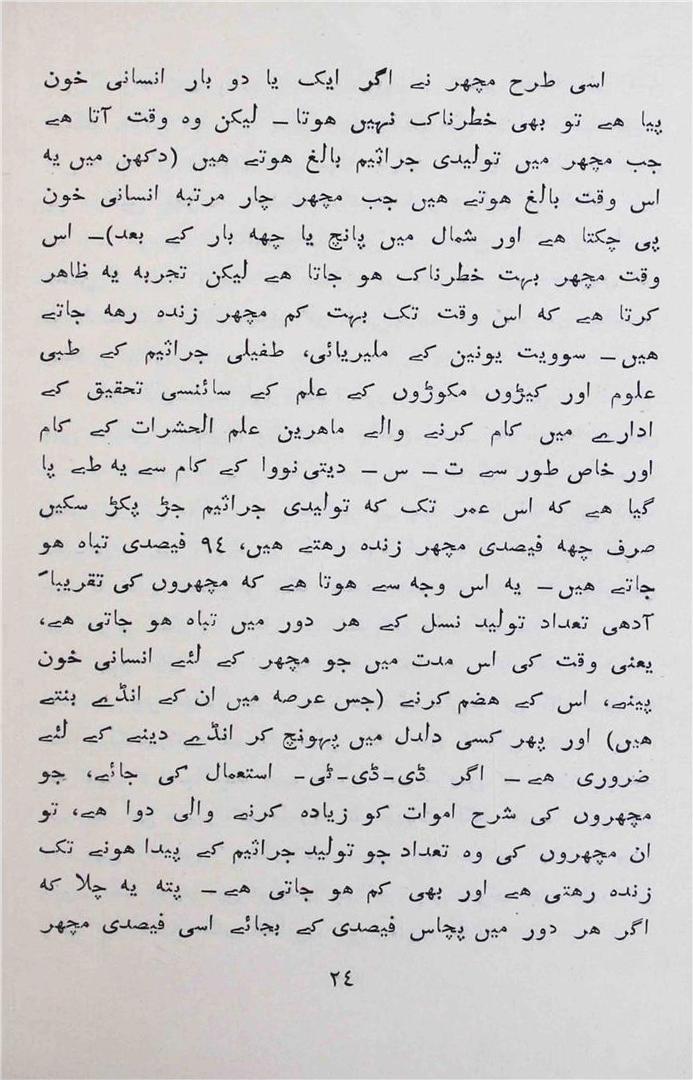 اسی طرح مچھر نے اگر ایک یا دو بار انسانی خون
پیا ھے تو بھی خطرناک نہیں ھوتا ـ لیکن وہ وقت آتا ھے
جب مچھر میں تولیدی جراثیم بالغ ھوتے ھیں (دکھن میں یہ
اس وقت بالغ ھوتے ھیں جب مچھر چار مرتبہ انسانی خون
پی چکتا ھے اور شمال میں پانچ یا چھہ بار کے بعد)ـ اس
وقت مچھر بہت خطرناک ھو جاتا ھے لیکن تجربہ یہ ظاھر
کرتا ھے کہ اس وقت تک بہت کم مچھر زندہ رھہ جاتے
ھیں ـ سوویت یونین کے ملیریائی، طفیلی جراثیم کے طبی
علوم اور کیڑوں مکوڑوں کے علم کے سائنسی تحقیق کے
ادارے میں کام کرنے والے ماھرین علم الحشرات کے کام
اور خاص طور سے ت ـ س ـ دیتی نووا کے کام سے یہ طے پا
گیا ھے کہ اس عمر تک کہ تولیدی جراثیم جڑ پکڑ سکیں
صرف چھہ فیصدی مچھر زندہ رھتے ھیں، ٩٤ فیصدی تباہ ھو
جاتے ھیں ـ یہ اس وجہ سے ھوتا ھے کہ مچھروں کی تقریباً
آدھی تعداد تولید نسل کے ھر دور میں تباہ ھو جاتی ھے،
یعنی وقت کی اس مدت میں جو مچھر کے لئے انسانی خون
پینے، اس کے ھضم کرنے (جس عرصہ میں ان کے انڈے بنتے
ھیں) اور پھر کسی دلدل میں پہونچ کر انڈے دینے کے لئے
ضروری ھے ـ اگر ڈی ـ ڈی ـ ٹی ـ استعمال کی جائے، جو
مچھروں کی شرح اموات کو زیادہ کرنے والی دوا ھے، تو
ان مچھروں کی وہ تعداد جو تولید جراثیم کے پیدا ھونے تک
زندہ رھتی ھے اور بھی کم ھو جاتی ھے ـ پتہ یہ چلا کہ
اگر ھر دور میں پچاس فیصدی کے بجائے اسی فیصدی مچھر
٢٤